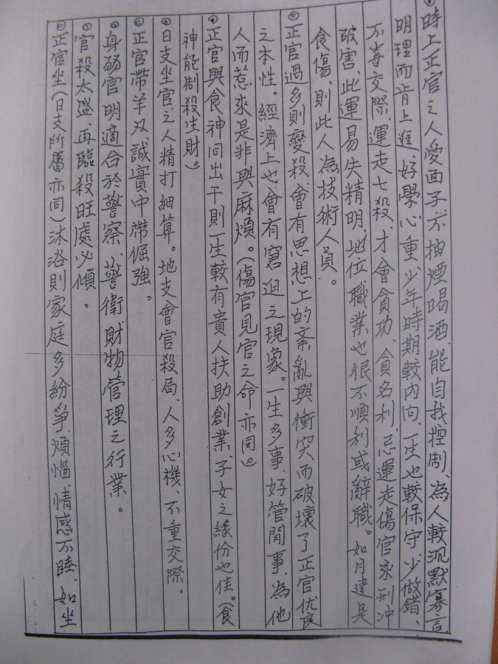 時上正官之人愛面子不抽煙喝酒、能自我控制、為人較沉默寡言
明理而肯上進、好學心重、少年時期較內向、一生也較保守、少做錯、
不善交際、運走七殺才會貪功、貪名利、忌運走傷官來刑沖
破害、此運易失精明、地位職業也很不順利或辭職。如月建是
食傷則此人為技術人員。
正官過多則變殺會有思想上的紊亂與衝突、而破壞了正官優良
之本性。經濟上也會有窘迫之現象。一生多事、好管閒事、為他
人而惹來是非與麻煩。(傷官見官之命亦同)
正官與食神同出干則一生較有貴人扶助創業、子女之緣份也佳。(食
神能制殺生財)
日支坐官之人精打細算。地支會官殺局、人多心機、不重交際。
正官帶羊刃、誠實中帶倔強。
身弱官明適合於警察、警衛財物管理之行業。
官殺太盛、再臨殺旺處必傾。
正官坐(日支所屬亦同)沐浴則家庭多紛爭、煩惱、情感不睦、如坐